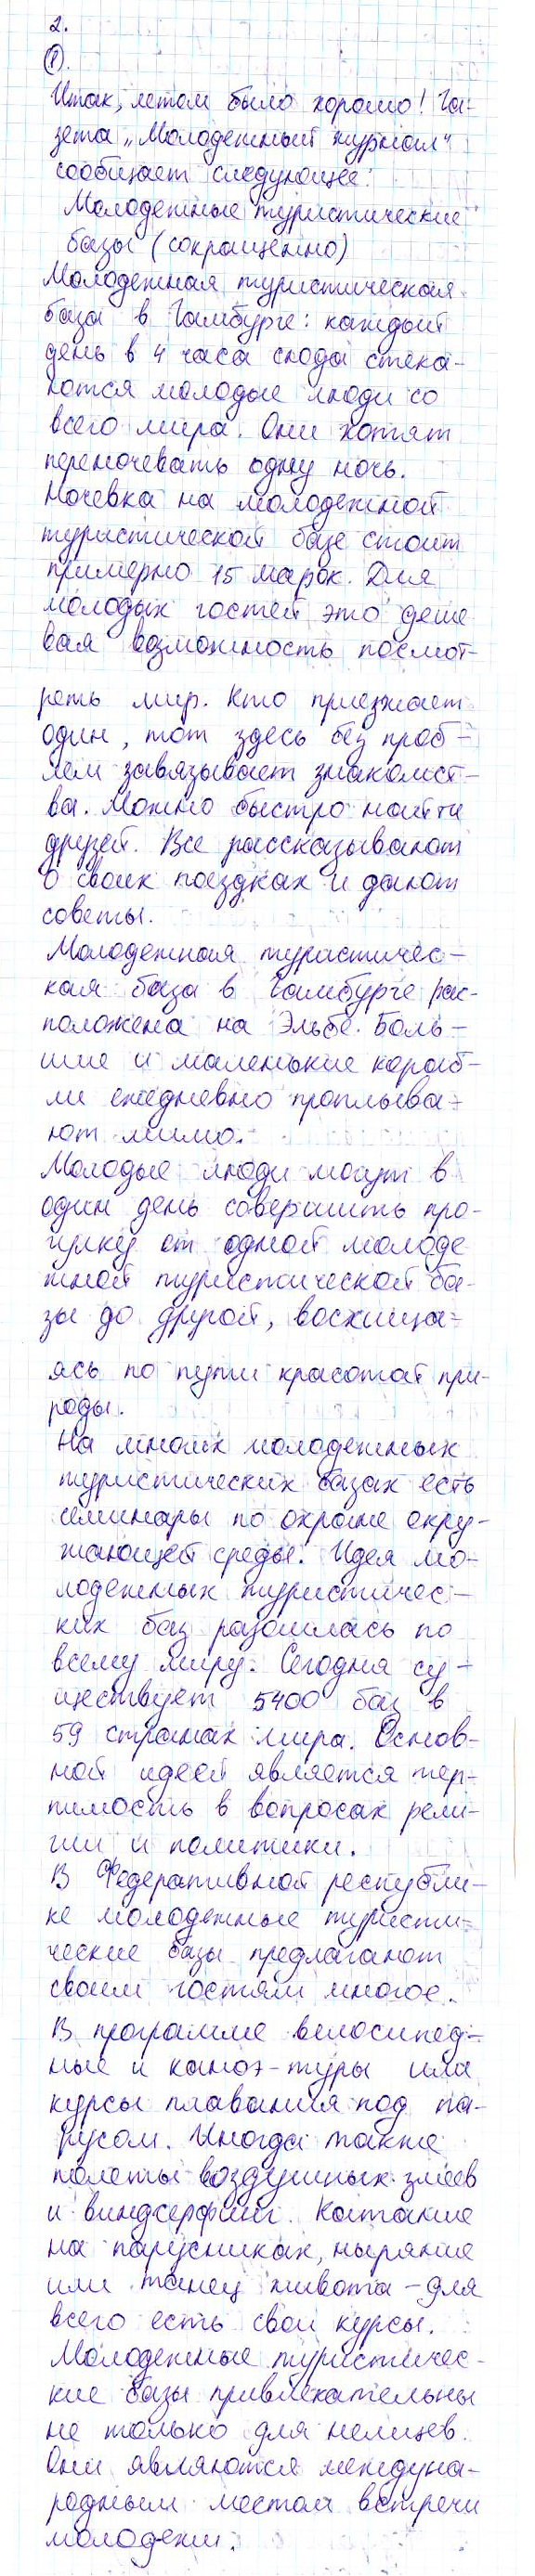 2.
1.
Итак, летом было хорошо! Га-
зета „Молодежный журнал“
сообщает следующее:
Молодежные туристические
базы (сокращенно)
Молодежная туристическая
база в Гамбурге: каждый
день в 4 часа сюда стека-
ются молодые люди со
всего мира. Они хотят
переночевать одну ночь.
Ночевка на молодежной
туристической базе стоит
примерно 15 марок. Для
молодых гостей это деше
вая возможность посмот-
реть мир. Кто приезжает
один, тот здесь без проб-
лем завязывает знакомст-
ва. Можно быстро найти
друзей. Все рассказывают
о своих поездках и дают
советы.
Молодежная туристичес-
кая база в Гамбурге рас-
положена на Эльбе. Боль-
шие и маленькие кораб-
ли ежедневно проплыва-
ют мимо.
Молодые люди могут в
один день совершить про-
гулку от одной молоде
жной туристической ба-
зы до другой, восхища-
ясь по пути красотой при-
роды.
На многих молодежных
туристических базах есть
семинары по охране окру-
жающей среды. Идея мо-
лодежных туристичес-
ких баз разошлась по
всему миру. Сегодня су-
ществует 5400 баз в
59 странах мира. Основ-
ной идеей является тер-
пимость в вопросах рели-
гии и политики.
В Федеративной республи-
ке молодежные туристи-
ческие базы предлагают
своим гостям многое.
В программе велосипед-
ные и каноэ-туры или
курсы плавания под па-
русом. Иногда также
полеты воздушных змеев
и виндсерфинг. Катание
на парусниках, ныряние
или танец живота - для
всего есть свои курсы.
Молодежные туристичес-
кие базы привлекательны
не только для немцев.
Они являются междуна-
родным местом встречи
молодежи.